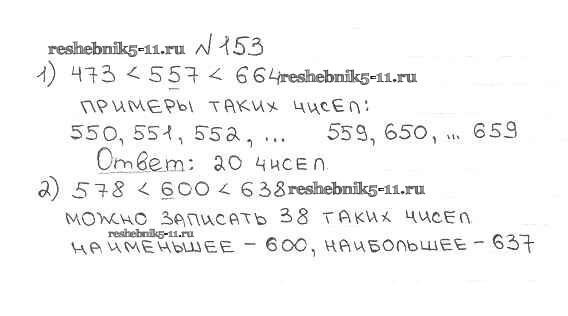 reshebnik5-11.ru №153
1) 473 < 557 < 664 reshebnik5-11.ru
ПРИМЕРЫ ТАКИХ ЧИСЕЛ:
550, 551, 552, ... 559, 650, ... 659
Ответ: 20 ЧИСЕЛ
2) 578 < 600 < 638 reshebnik5-11.ru
МОЖНО ЗАПИСАТЬ 38 ТАКИХ ЧИСЕЛ
reshebnik5-11.ru
НАИМЕНЬШЕЕ – 600, НАИБОЛЬШЕЕ – 637